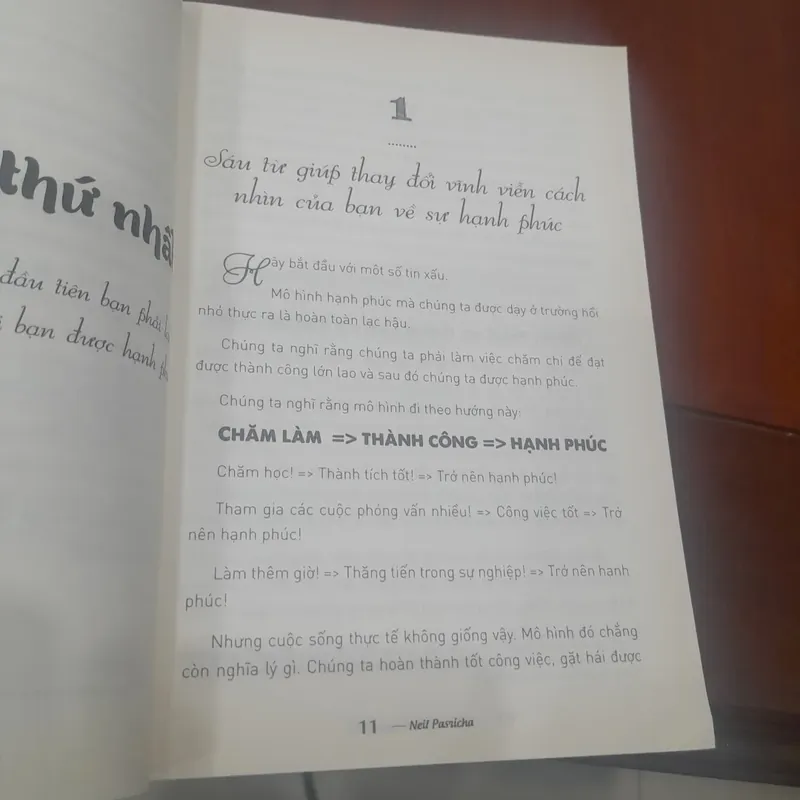 thứ nhấ
đầu tiên bạn phải
bạn được hạnh
1
........
Sáu từ giúp thay đổi vĩnh viễn cách
nhìn của bạn về sự hạnh phúc
Hãy bắt đầu với một số tin xấu.
Mô hình hạnh phúc mà chúng ta được dạy ở trường hồi
nhỏ thực ra là hoàn toàn lạc hậu.
Chúng ta nghĩ rằng chúng ta phải làm việc chăm chỉ để đạt
được thành công lớn lao và sau đó chúng ta được hạnh phúc.
Chúng ta nghĩ rằng mô hình đi theo hướng này:
CHĂM LÀM => THÀNH CÔNG => HẠNH PHÚC
Chăm học! => Thành tích tốt! => Trở nên hạnh phúc!
Tham gia các cuộc phỏng vấn nhiều! => Công việc tốt => Trở
nên hạnh phúc!
Làm thêm giờ! => Thăng tiến trong sự nghiệp! => Trở nên hạnh
phúc!
Nhưng cuộc sống thực tế không giống vậy. Mô hình đó chẳng
còn nghĩa lý gì. Chúng ta hoàn thành tốt công việc, gặt hái được
11 — Neil Pasricha